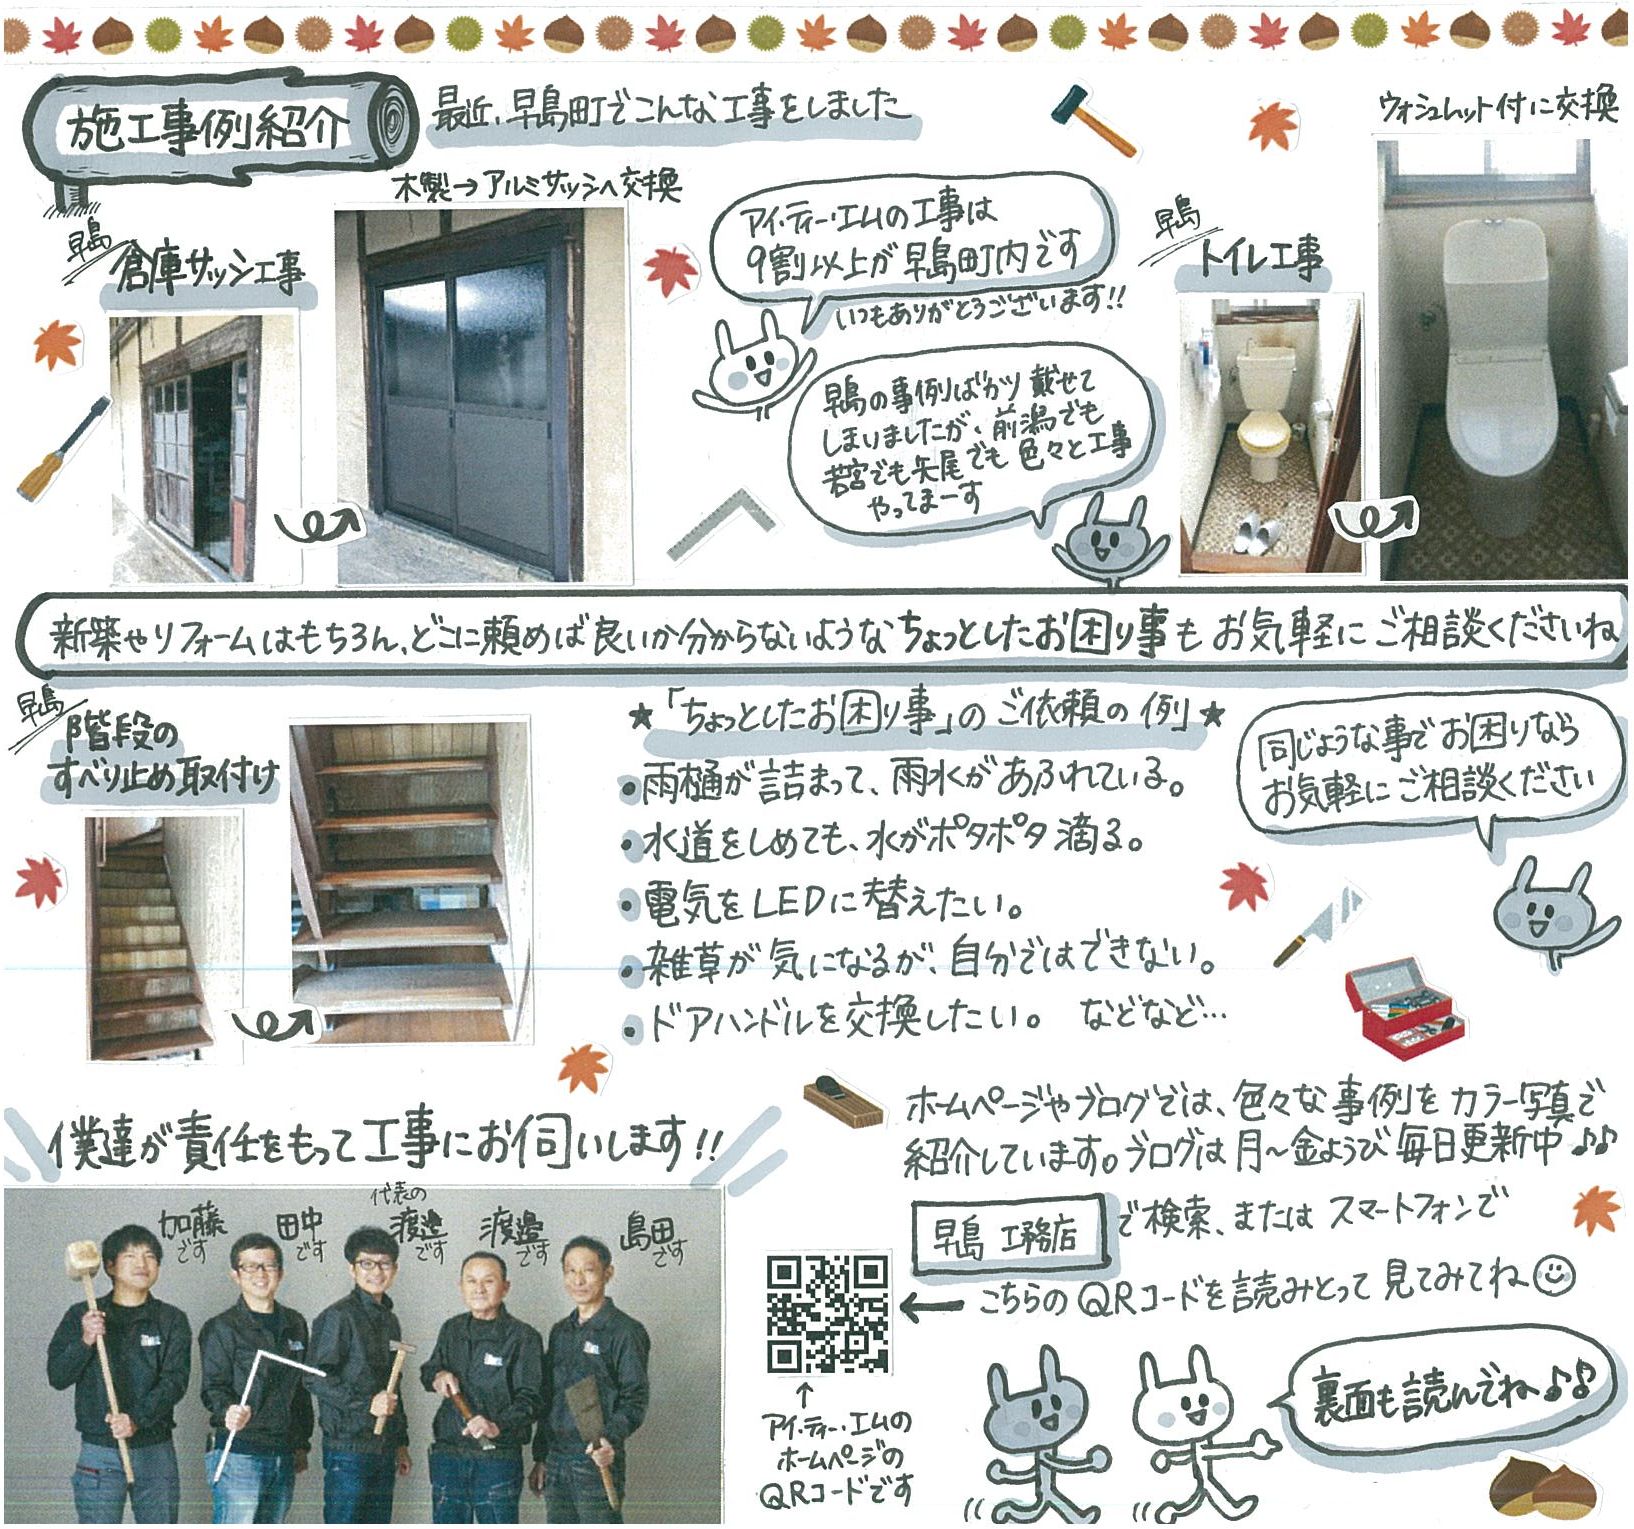 施工事例紹介
最近、早島町でこんな工事をしました
木製→アルミサッシへ交換
早島
倉庫サッシ工事
アイ・ティー・エムの工事は
9割以上が早島町内です
いつもありがとうございます!!
早島の事例ばかり載せて
しまいましたが、前潟でも
若宮でも矢尾でも色々と工事
やってまーす
ウォシュレット付に交換
早島
トイレ工事
新築やリフォームはもちろん、どこに頼めば良いか分からないようなちょっとしたお困り事もお気軽にご相談くださいね
早島
階段の
すべり止め取付け
★「ちょっとしたお困り事」のご依頼の例★
・雨樋が詰まって、雨水があふれている。
・水道をしめても、水がポタポタ滴る。
・電気をLEDに替えたい。
・雑草が気になるが、自分ではできない。
・ドアハンドルを交換したい。 などなど…
同じような事でお困りなら
お気軽にご相談ください
僕達が責任をもって工事にお伺いします!!
加藤
です
田中
です
代表の
渡邉
です
渡邉
です
島田
です
ホームページやブログでは、色々な事例をカラー写真で
紹介しています。ブログは月〜金ようび毎日更新中♪♪
早島 工務店 で検索、またはスマートフォンで
← こちらのQRコードを読みとって見てみてね☺
↑
アイ・ティー・エムの
ホームページの
QRコードです
裏面も読んでね♪♪